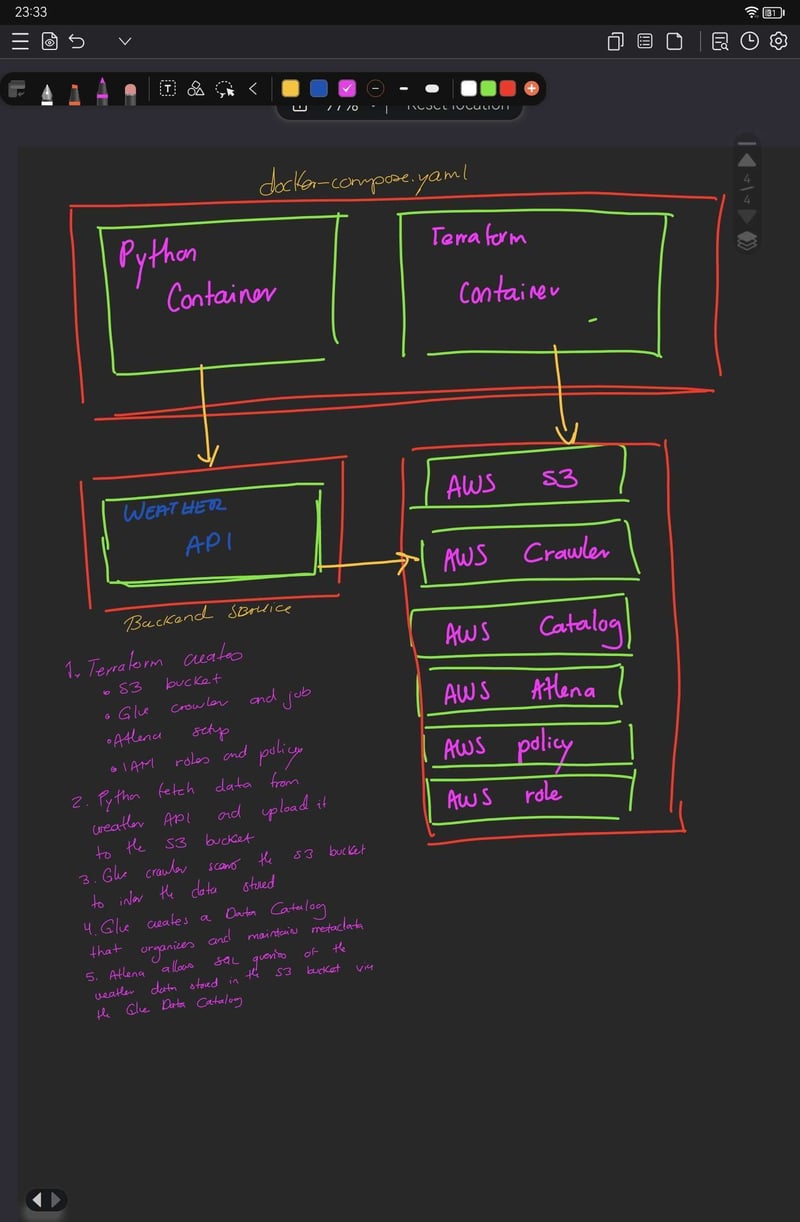 23:33
81
T
77%
Reset location
4
4
docker-compose.yaml
Python
Container
Terraform
Container
WEATHER
API
Backend Service
AWS S3
AWS Crawler
AWS Catalog
AWS Athena
AWS policy
AWS role
1. Terraform creates
• S3 bucket
• Glue crawler and job
• Athena setup
• IAM roles and policy
2. Python fetch data from
weather API and upload it
to the S3 bucket
3. Glue crawler scans the S3 bucket
to infer the data stored
4. Glue creates a Data Catalog
that organizes and maintain metadata
5. Athena allows SQL queries of the
weather data stored in the S3 bucket via
the Glue Data Catalog